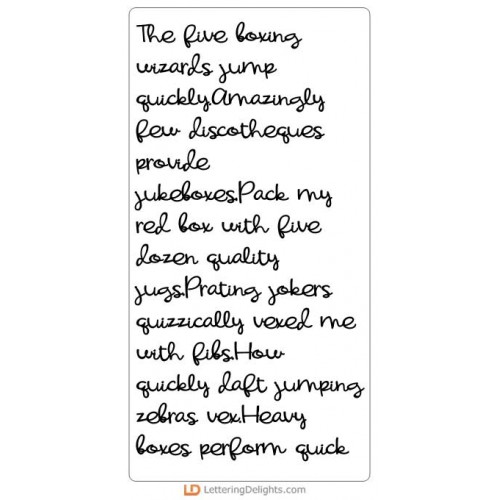 The five boxing
wizards jump
quickly.Amazingly
few discotheques
provide
jukeboxes.Pack my
red box with five
dozen quality
jugs.Prating jokers
quizzically vexed me
with fibs.How
quickly daft jumping
zebras vex.Heavy
boxes perform quick
LD LetteringDelights.com